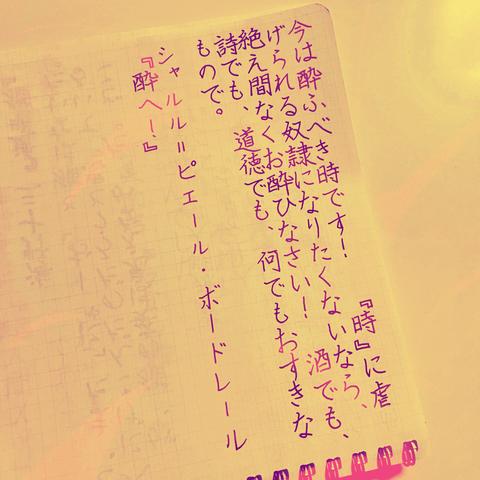 今は酔ふべき時です！　『時』に虐
げられる奴隷になりたくないなら、
絶え間なくお酔ひなさい！　酒でも、
詩でも、道徳でも、何でもおすきな
もので。
シャルル＝ピエール・ボードレール
『酔へ！』